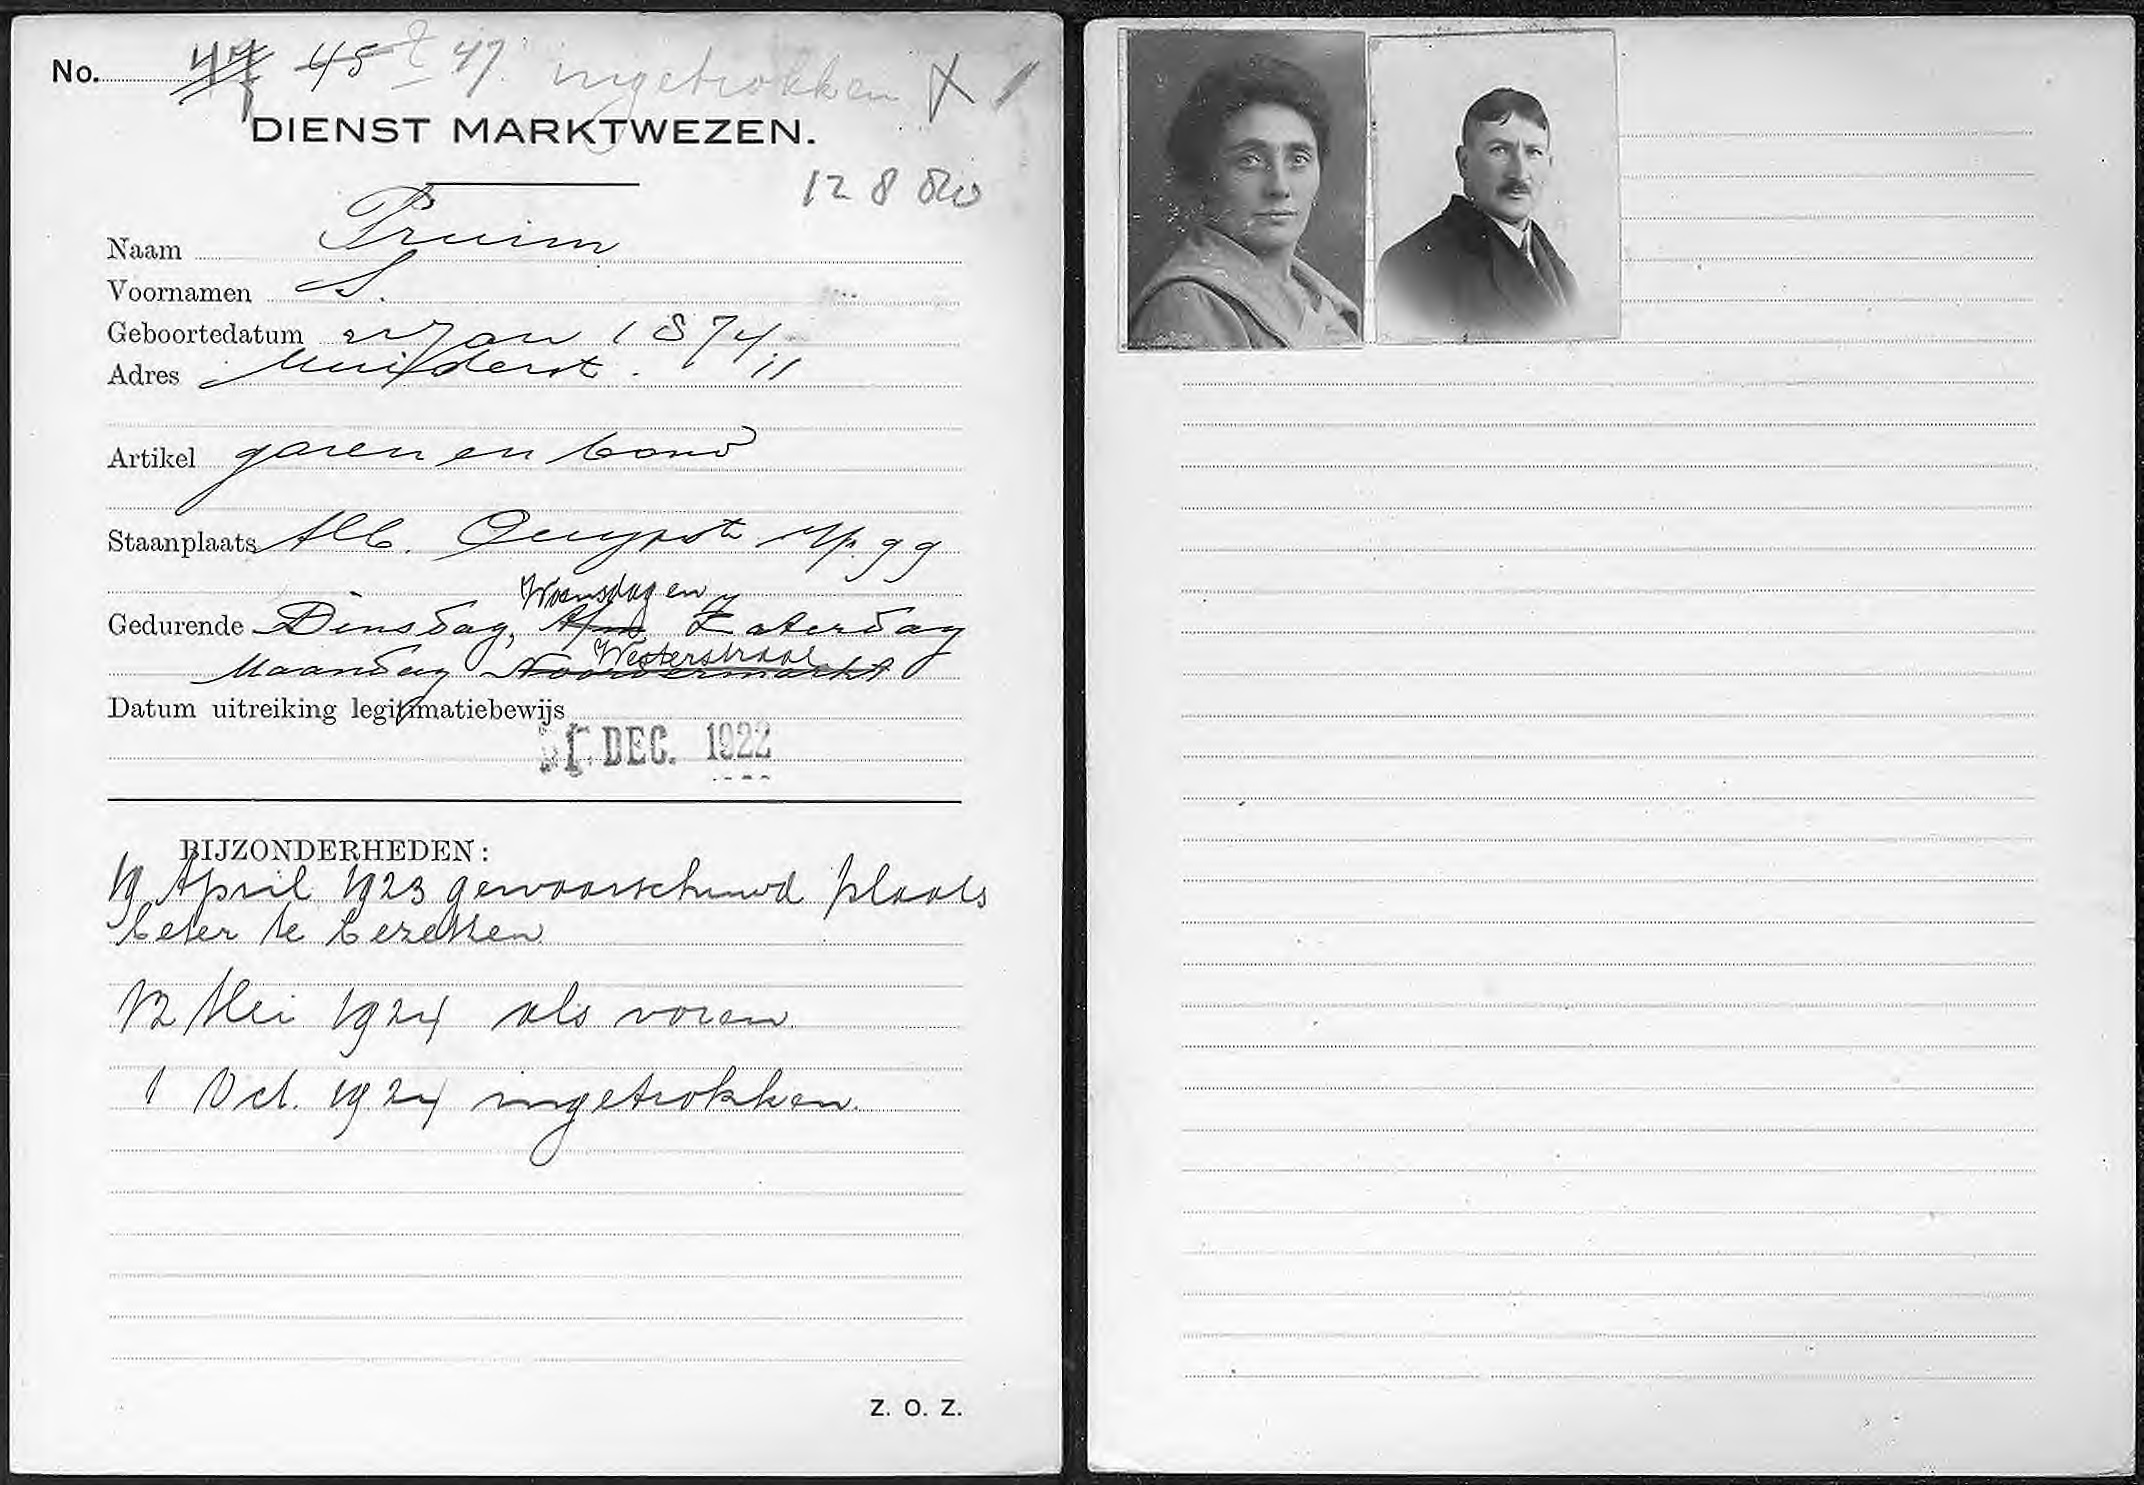 No. 47 45 47. ingetrokken X
DIENST MARKTWEZEN.
Naam Pruim
Voornamen S.
Geboortedatum 22 Jan 1874
Adres Muiderst. 11
Artikel garen en band
Staanplaats Alb. Cuypstr
Woensdag en
Gedurende Dinsdag, Zaterdag
Westerstraat
Maandag Noordermarkt
Datum uitreiking legitimatiebewijs
DEC. 1922
BIJZONDERHEDEN:
19 April 1923 gewaarschuwd plaats
beter te bezetten
12 Mei 1924 als voren.
1 Oct. 1924 ingetrokken.
Z. O. Z.